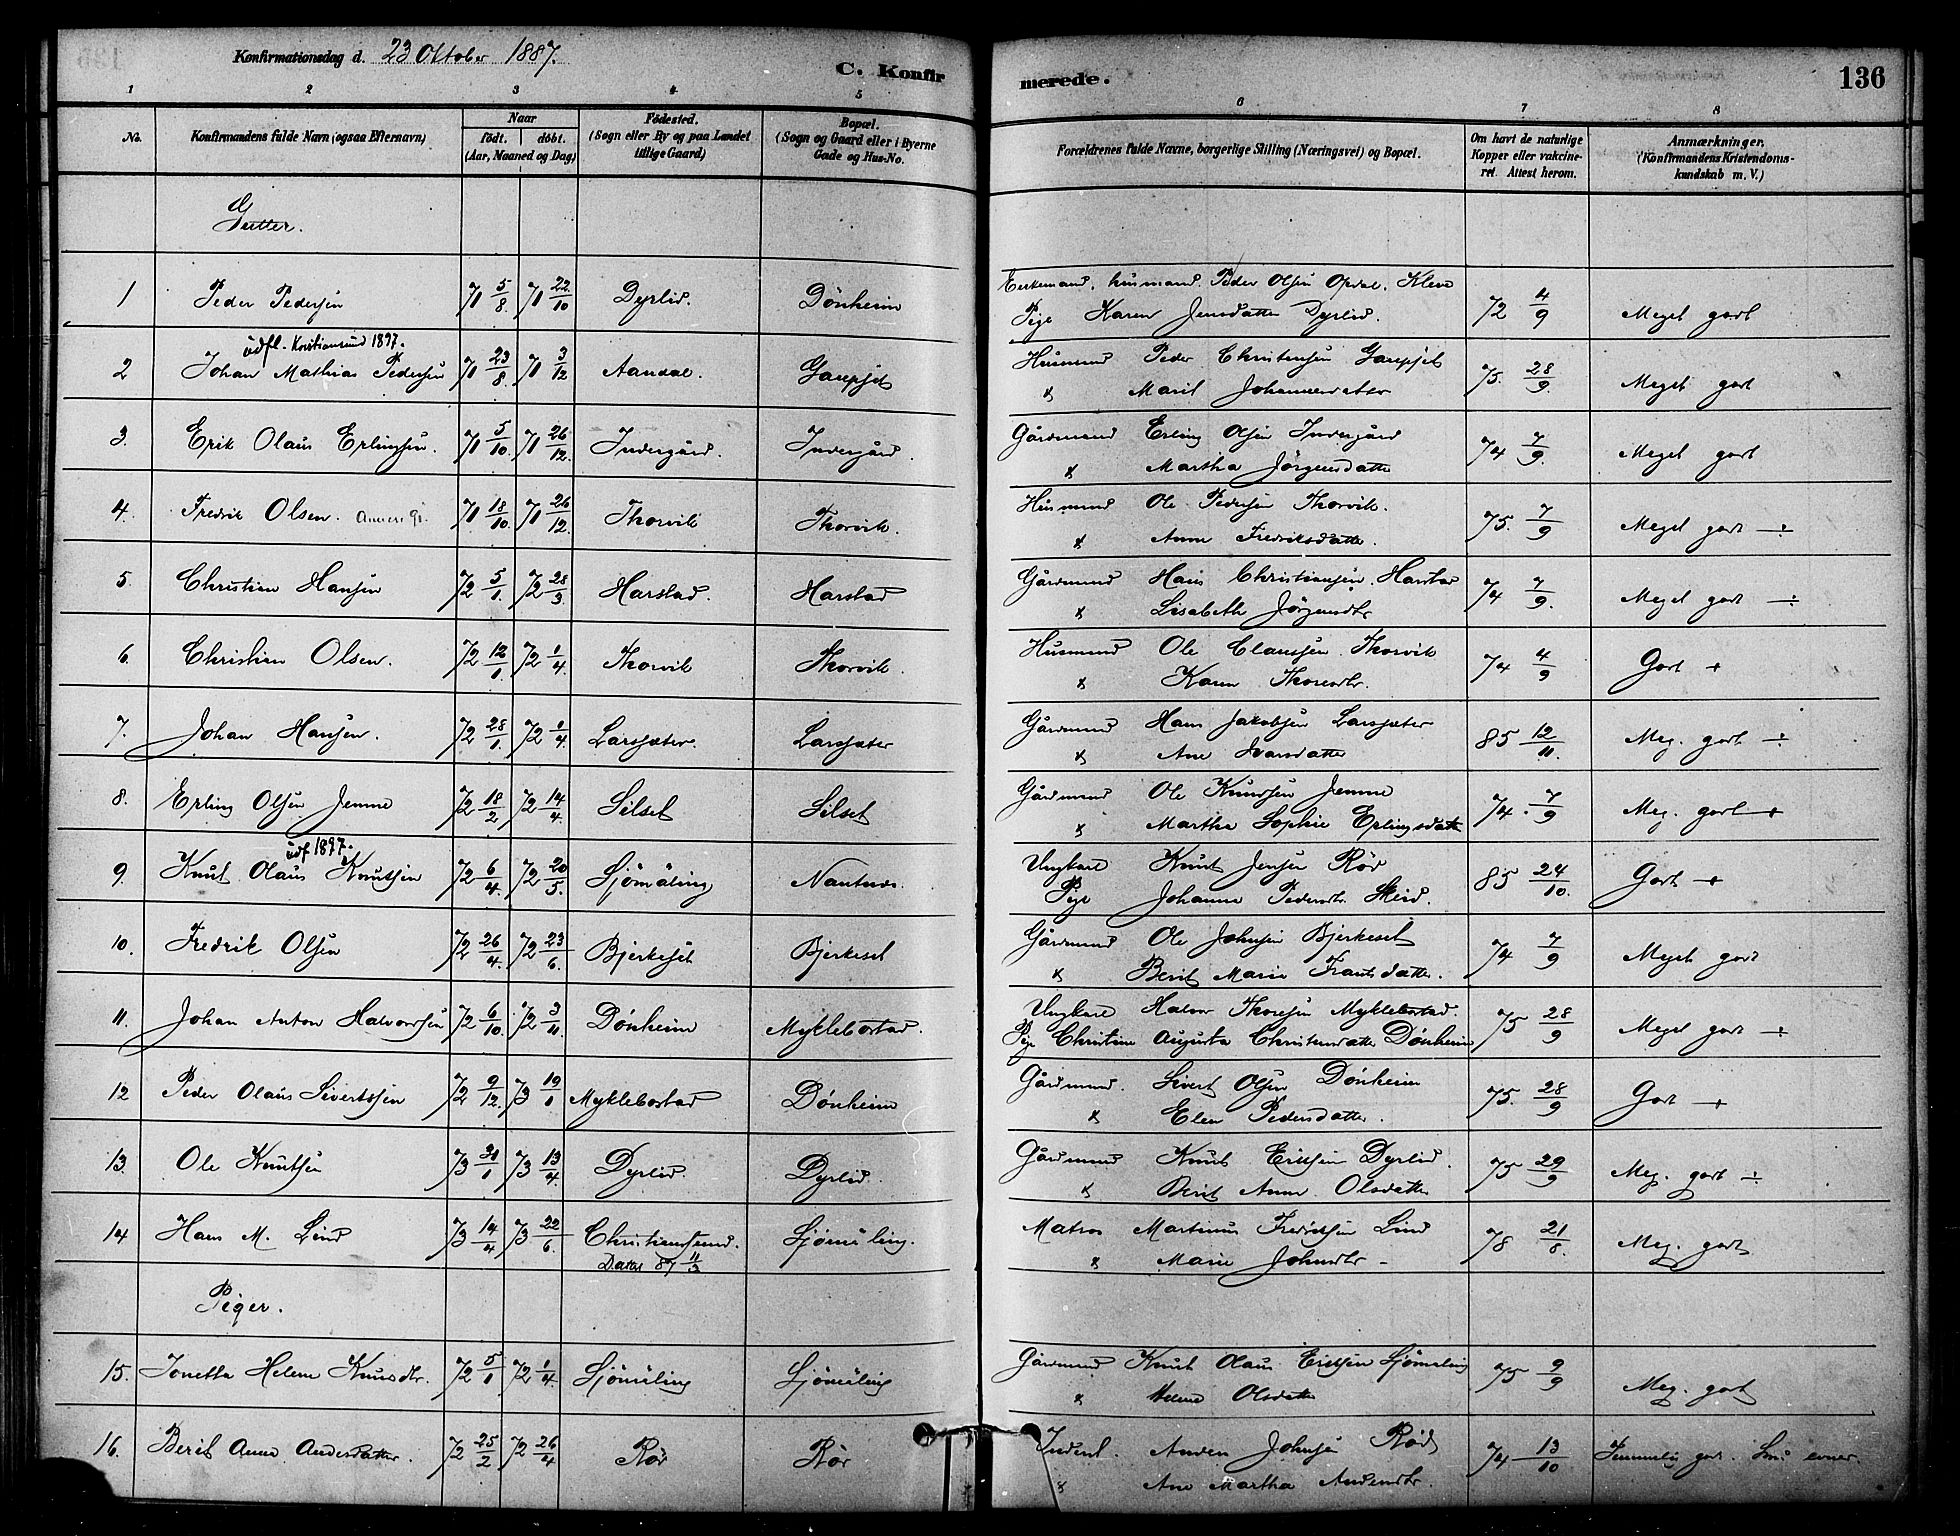 Konfirmationsdag d. 23 Oktober 1887.
C. Konfirmerede.
136
1 2 3 4 5 6 7 8
No.
Konfirmandens fulde Navn (ogsaa Efternavn)
Naar
födt. döbt.
(Aar, Maaned og Dag)
Födested.
(Sogn eller By og paa Landet
tillige Gaard)
Bopæl.
(Sogn og Gaard eller i Byerne
Gade og Hus-No.
Forældrenes fulde Navne, borgerlige Stilling (Næringsvei) og Bopæl.
Om havt de naturlige
Kopper eller vakcine-
ret. Attest herom.
Anmærkninger.
(Konfirmandens Kristendoms-
kundskab m. V.)
Gutter.
1 Peder Pedersen 71 5/8 71 22/10 Dyrlid. Dönheim Enkemand, husmand Peder Olsen Opdal, Kleve 72 4/9 Meget godt
Pige Karen Jensdatter Dyrlid.
udfl. Kristiansund 1897.
2 Johan Mathias Pedersen 71 23/8 71 3/12 Aandal. Garpset Husmand Peder Christensen Garpset 75. 28/9. Meget godt
" Marit Johannesdatter
3. Erik Olaus Erlingsen. 71 5/10. 71 26/12. Indergård. Indergård. Gårdmand Erling Olsen Indergård 74 7/9. Meget godt
" Martha Jörgensdatter
4. Fredrik Olsen. 71 18/10. 71 26/12. Thorvik Thorvik Husmand Ole Pedersen Thorvik. 75. 7/9 Meget godt ÷
" Anne Fredriksdatter.
5 Christian Hansen 72 5/1. 72 28/3. Harstad. Harstad Gårdmand Hans Christiansen Harstad 74 7/9. Meget godt ÷
" Lisabeth Jörgensdtr
6. Christian Olsen. 72 12/1 72 1/4. Thorvik Thorvik. Husmand Ole Clausen Thorvik 74 4/9 Godt +
" Karen Thoresdtr.
7. Johan Hansen. 72 28/1. 72 1/4. Larssæter. Larssæter Gårdmand Hans Jakobsen Larssæter 85 12/11. Meg. godt ÷
" Ane Ivarsdatter
8. Erling Olsen Jemne 72 18/2 72 14/4. Silset Silset Gårdmand Ole Knudsen Jemne 74. 7/9 Meg. godt +
" Martha Sophie Erlingsdatter
udf 1897.
9. Knut Olaus Knutsen 72 6/4. 72 20/5. Sjömäling Nautnes. Ungkare Knut Jensen Röd 85 24/10. Godt +
Pige Johanna Pedersdtr. Skeid.
10. Fredrik Olsen 72 26/4. 72 23/6. Bjerkeset Bjerkeset Gårdmand Ole Johnsen Bjerkeset 74 7/9 Meget godt
" Berit Marie Frantsdatter.
11. Johan Anton Halvorsen 72 6/10. 72 3/11. Dönheim Myklebostad. Ungkare Halvor Thoresen Myklebostad. 75 28/9 Meget godt ÷
Pige Christine Augusta Christensdatter Dönheim
12 Peder Olaus Sivertsen 72 9/12. 73 19/1 Myklebostad Dönheim Gårdmand. Sivert Olsen Dönheim 75. 28/9 Godt +
" Elen Pedersdatter.
13. Ole Knutsen 73 31/1 73 13/4 Dyrlid. Dyrlid. Gårdmand Knut Eriksen Dyrlid. 75 29/9 Meg. godt ÷
" Berit Anne Olsdatter
14 Hans M. Lind 73 14/4 73 22/6. Christianssund. Sjömäling. Matros Martinus Fredriksen Lind 78 21/8. Meg. godt
Datal 87 11/3 " Marie Johnsdtr -
Piger.
15. Jonetta Helene Knutsdtr. 72 5/1 72 1/4. Sjömäling Sjömäling Gårdmand Knut Olaus Eriksen Sjömäling 75 9/9 Meg. godt
" Helene Olsdatter
16. Berit Anne Andersdatter. 72 25/2 72 26/4 Röd Röd Inderst. Anders Johnsen Röd 74 13/10 Temmelig godt. Små evner.
" Ane Martha Andersdtr